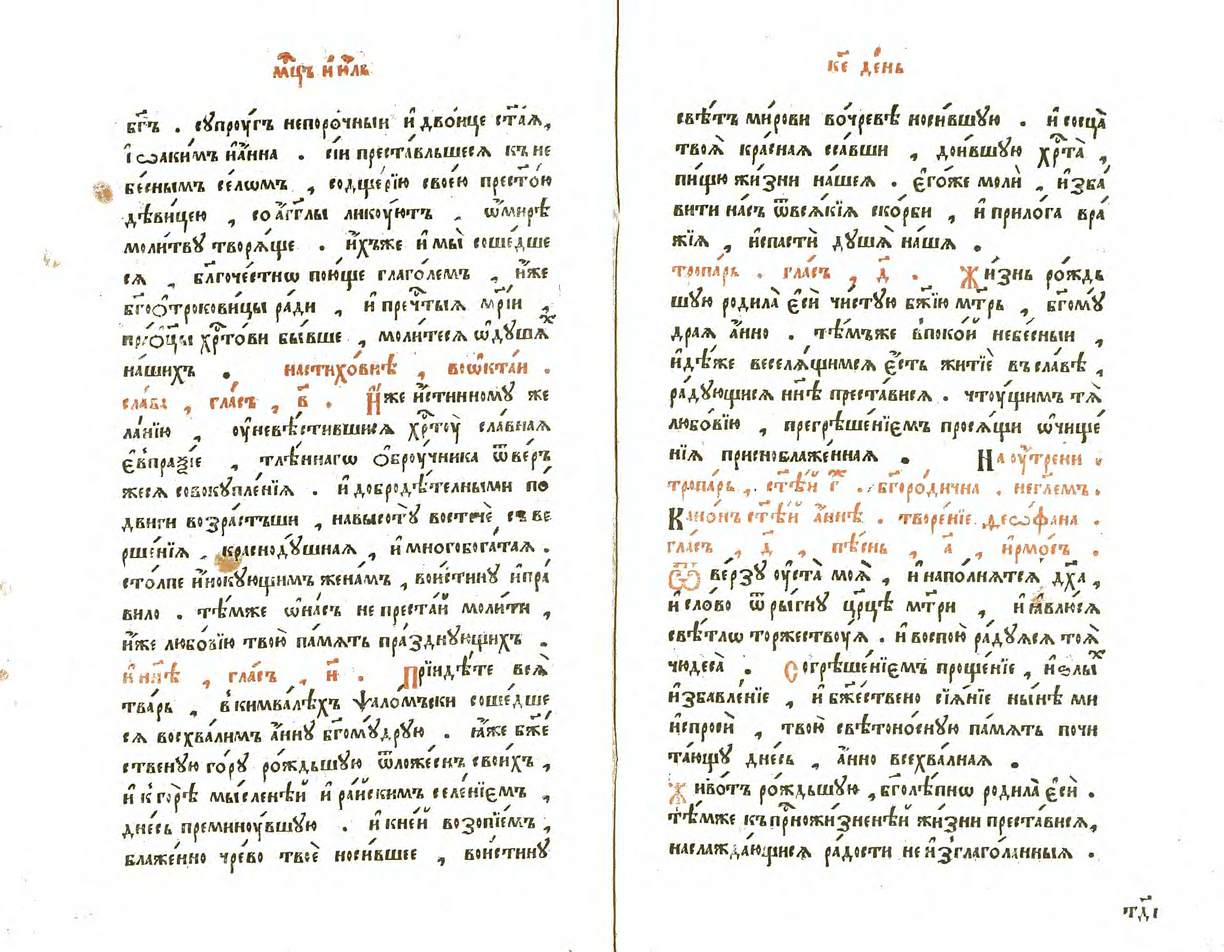 мⷭ҇цъ и҆ю҆́ль
бг҃ъ . сꙋпрꙋ́гъ непоро́чныи и҆дво́ице ст҃а́ѧ,
і҆ѡаки́мъ и҆а҆́нна . сїи преста́вльшесѧ къ не
бе́снымъ се́лѡмъ , содще́рїю свое́ю престо́ю
дѣви́цею , со а҆́гг҃лы ликꙋ́ютъ , ѡ҆ми́рѣ
моли́твꙋ творѧ́ще . и҆́хъже и҆ мы̀ соше́дше
сѧ , бл҃гоче́стнѡ пою́ще глаго́лемъ , и҆̀же
бг҃оѻтрокови́цы ра́ди , и҆ пречⷭ҇тыѧ мр҃і́и ,
прао҆ц҃ы хрⷭ҇то́ви бы́вше , моли́тесѧ ѡ҆дꙋша́хъ
на́шихъ . настихо́внѣ , воѡ҆кта́и .
сла́ва , гла́съ , в҃ . И҆̀же и҆́стинномꙋ же
ла́нїю , ѹ҆невѣ́стившисѧ хрⷭ҇тꙋ̀ сла́внаѧ
є҆впра́ѯїе , тлѣ́ннагѡ ѻ҆брꙋ́чника ѿве́ръ
жесѧ совокꙋпле́нїѧ . и҆ добродѣ́телными по́
двиги возра́стъши , навысотꙋ̀ востечѐ, съ ве
рше́нїѧ . краснодꙋ́шнаѧ , и҆многобога́таѧ .
сто́лпе и҆́нокꙋющимъ жена́мъ , вои́стинꙋ и҆пра́
вило . тѣ́мже ѡ҆на́съ не преста́й моли́ти ,
и҆̀же любо́вїю твою̀ па́мѧть пра́зднꙋющихъ .
и҆ нн҃ѣ , гла́съ , и҃ . Прїиди́те всѧ̀
тва́рь , в кимва́лѣхъ ѱало́мъски соше́дше
сѧ восхва́лимъ а҆́ннꙋ бг҃омꙋ́дрꙋю . ꙗ҆́же бж҃е́
ственꙋю го́рꙋ ро́ждьшꙋю ѿложе́снъ свои́хъ ,
и҆ к горѣ̀ мы́сленѣй и҆ ра́йскимъ селе́нїємъ ,
дне́сь преминꙋ́вшꙋю . и҆ кне́й возопїе́мъ ,
блаже́нно чре́во твоѐ носи́вшее , вои́стинꙋ
ке҃ де́нь
свѣ́тъ ми́рови во́чревѣ носи́вшꙋю . и҆ сосца̀
твоѧ̀ кра́снаѧ сса́вши , дои́вшꙋю хрⷭ҇та̀ ,
пи́щꙋ жи́зни на́шеѧ . є҆го́же молѝ , и҆зба́
вити на́съ ѿвсѧ́кїѧ ско́рби , и҆ прило́га вра́
жїѧ , и҆спасти́ дꙋшѧ̀ на́шѧ .
тропа́рь . гла́съ , д҃ . Жи́знь ро́ждь
шꙋю родила̀ є҆сѝ чи́стꙋю бж҃їю мт҃рь , бг҃омꙋ́
драѧ а҆́нно . тѣ́мъже в поко́й небе́сныи ,
и҆дѣ́же веселѧ́щимсѧ є҆́сть житїѐ въ сла́вѣ ,
ра́дꙋющисѧ нн҃ѣ преста́висѧ . чтꙋ́щимъ тѧ̀
любо́вїю , прегрѣше́нїємъ просѧ́щи ѡ҆чище́
нїѧ присноблаже́ннаѧ . На ѹ҆́трени .
тропа́рь , ст҃ѣ́й г҃ . бг҃оро́дична . негле́мъ .
Кано́нъ ст҃ѣ́й а҆́ннѣ . творе́нїе ѳеѡфа́на .
гла́съ , д҃ , пѣ́снь , а҃ , и҆рмо́съ .
Ѿве́рзꙋ ѹ҆ста̀ моѧ̀ , и҆ напо́лнѧтсѧ дх҃а ,
и҆ сло́во ѿры́гнꙋ цр҃цѣ мт҃ри , и҆ ꙗ҆влю́сѧ
свѣ́тлѡ торжествꙋ́ѧ . и҆ воспою̀ ра́дꙋѧсѧ тоѧ̀
чюдеса̀ . Согрѣше́нїємъ проще́нїе , и҆ѕлы́хъ
и҆збавле́нїе , и҆ бж҃е́ствено сїѧ́нїе ны́нѣ ми
и҆спросѝ , твою̀ свѣтоно́снꙋю па́мѧть почи
та́ющꙋ дне́сь , а҆́нно всехва́лнаѧ .
Живо́тъ ро́ждьшꙋю , бг҃олѣ́пнѡ родила̀ є҆сѝ .
тѣ́мже къ приⷭ҇ножи́зненѣй жи́зни преста́висѧ,
наслажда́ющисѧ ра́дости неи҆зглаго́ланныѧ .
тд҃і